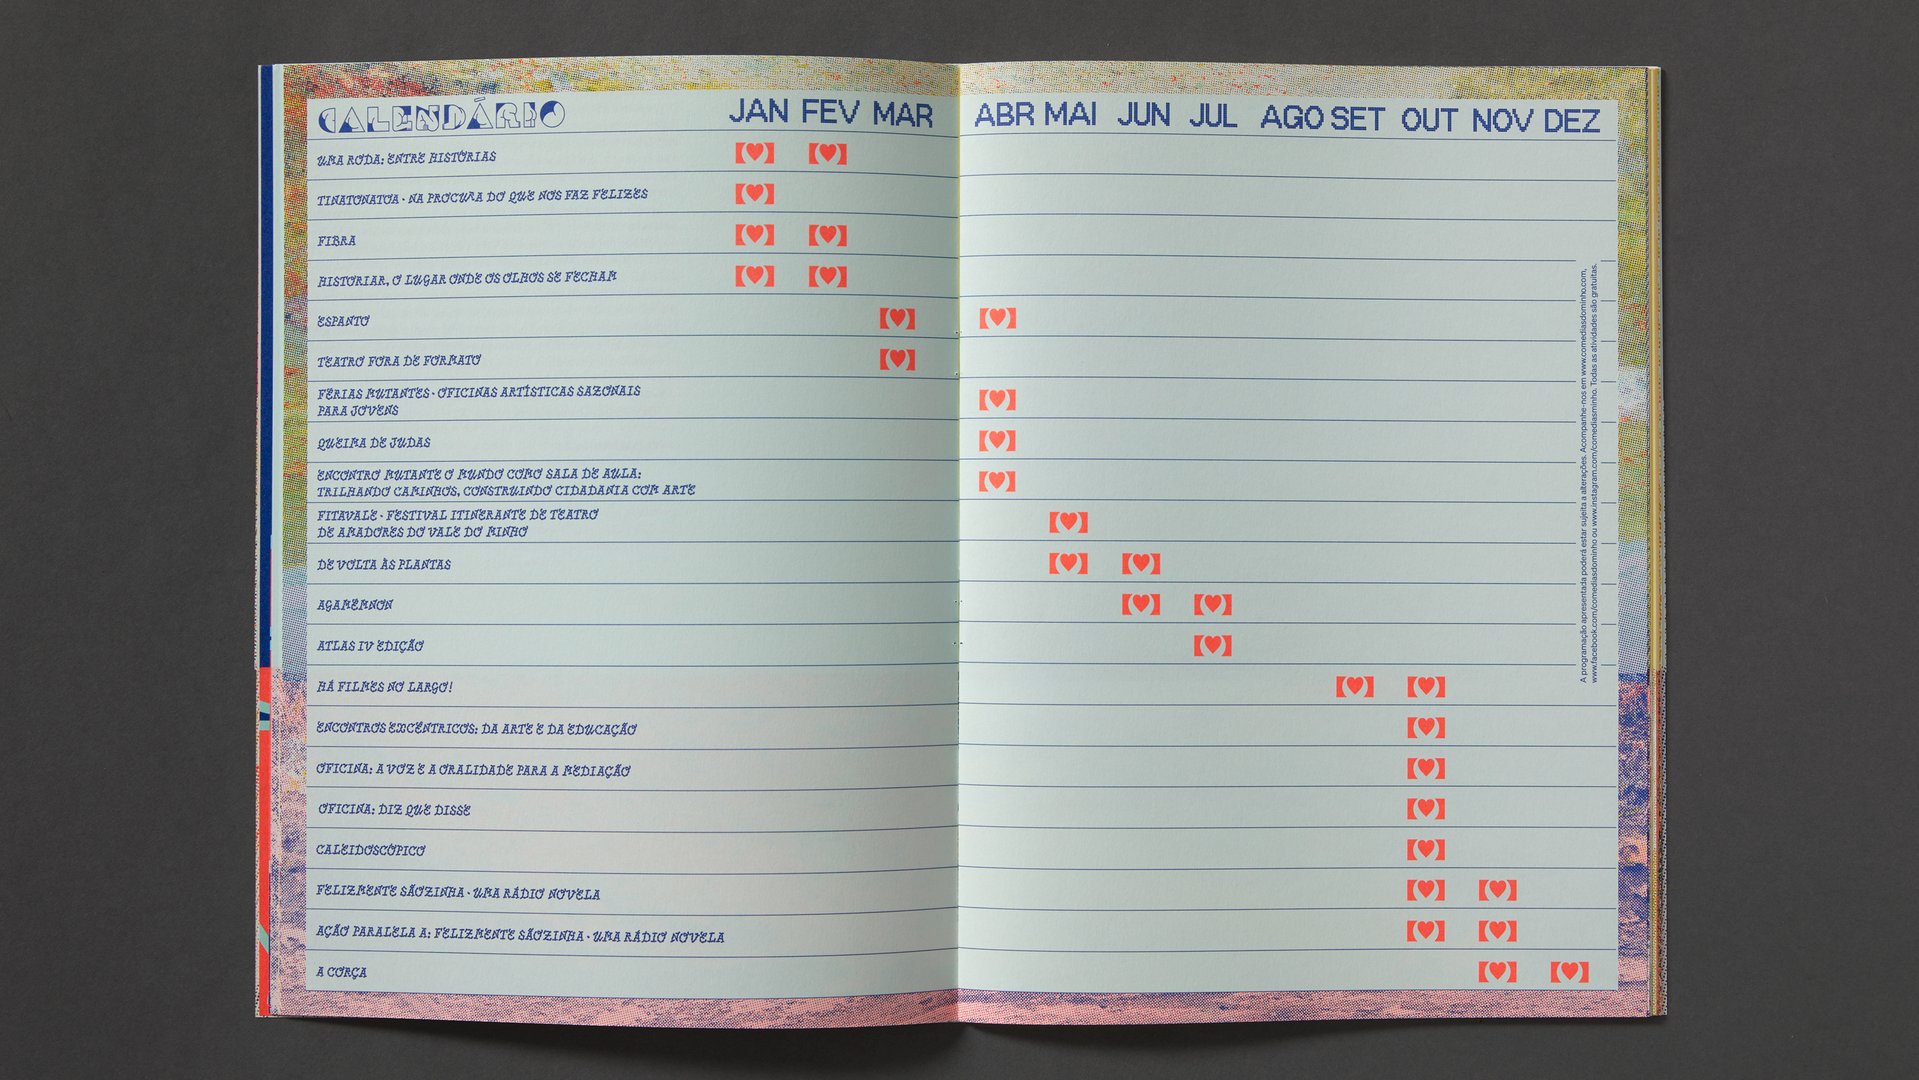 CALENDÁRIO
JAN FEV MAR ABR MAI JUN JUL AGO SET OUT NOV DEZ
UMA RODA: ENTRE HISTÓRIAS
TINATONATOA · NA PROCURA DO QUE NOS FAZ FELIZES
FIBRA
HISTORIAR, O LUGAR ONDE OS OLHOS SE FECHAM
ESPANTO
TEATRO FORA DE FORMATO
FÉRIAS MUTANTES · OFICINAS ARTÍSTICAS SAZONAIS
PARA JOVENS
QUEIMA DE JUDAS
ENCONTRO MUTANTE O MUNDO COMO SALA DE AULA:
TRILHANDO CAMINHOS, CONSTRUINDO CIDADANIA COM ARTE
FITAVALE · FESTIVAL ITINERANTE DE TEATRO
DE AMADORES DO VALE DO MINHO
DE VOLTA ÀS PLANTAS
AGAMÉMNON
ATLAS IV EDIÇÃO
HÁ FILMES NO LARGO!
ENCONTROS EXCÊNTRICOS: DA ARTE E DA EDUCAÇÃO
OFICINA: A VOZ E A ORALIDADE PARA A MEDIAÇÃO
OFICINA: DIZ QUE DISSE
CALEIDOSCÓPICO
FELIZMENTE SÃOZINHA · UMA RÁDIO NOVELA
AÇÃO PARALELA A: FELIZMENTE SÃOZINHA · UMA RÁDIO NOVELA
A CORÇA
A programação apresentada poderá estar sujeita a alterações. Acompanhe-nos em www.comediasdominho.com,
www.facebook.com/comediasdominho ou www.instagram.com/comediasminho. Todas as atividades são gratuitas.